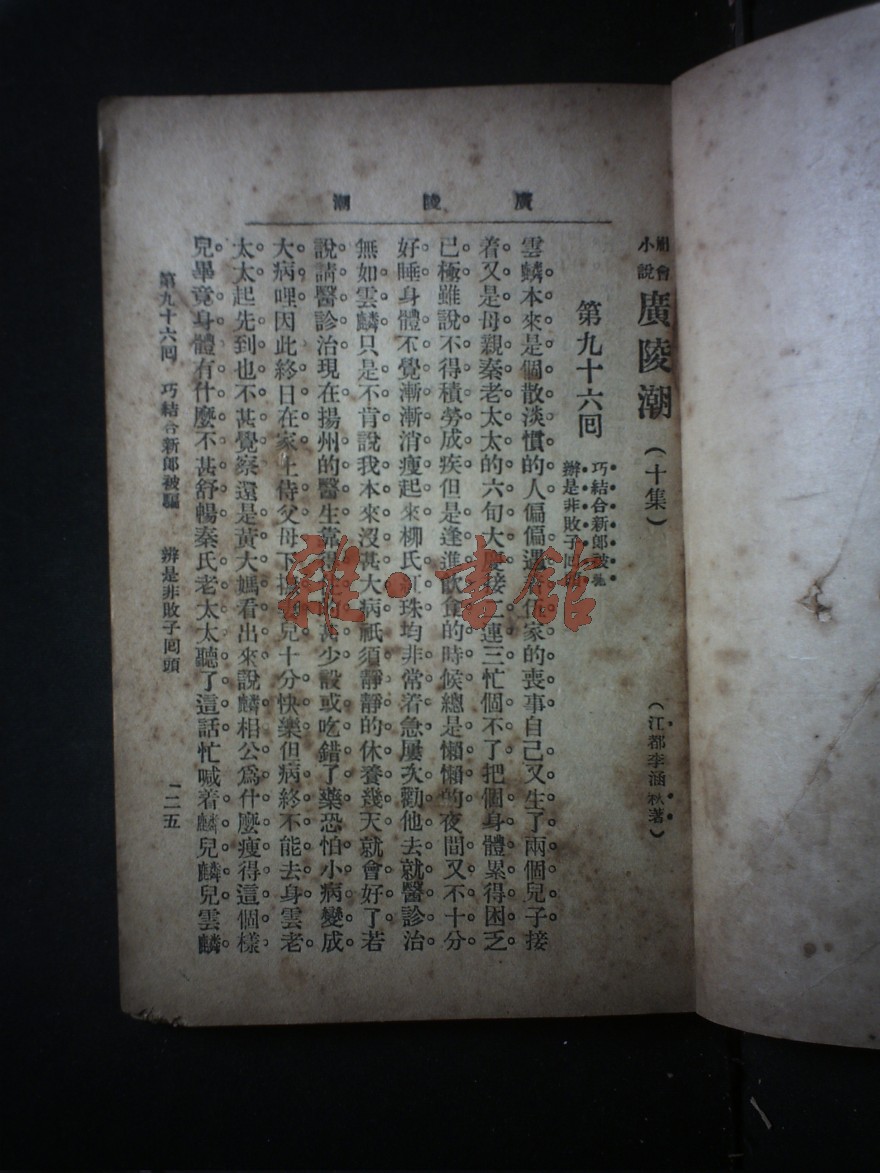 廣陵潮
社會小說 廣陵潮 (十集) (江都李涵秋著)
第九十六回
巧結合新郎被騙
辦是非敗子回頭
雲麟本來是個散淡慣的人偏偏遇着伍家的喪事自己又生了兩個兒子接
着又是母親秦老太太的六旬大慶接二連三忙個不了把個身體累得困乏
已極雖說不得積勞成疾但是逢進飲食的時候總是懶懶的夜間又不十分
好睡身體不覺漸漸消瘦起來柳氏紅珠均非常着急屢次勸他去就醫診治
無如雲麟只是不肯說我本來沒甚大病祇須靜靜的休養幾天就會好了若
說請醫診治現在揚州的醫生靠得住的甚少設或吃錯了藥恐怕小病變成
大病哩因此終日在家上侍父母下撫兒十分快樂但病終不能去身雲老
太太起先到也不甚覺察還是黃大媽看出來說麟相公爲什麼瘦得這個樣
兒畢竟身體有什麼不甚舒暢秦氏老太太聽了這話忙喊着麟兒麟兒雲麟
第九十六回 巧結合新郎被騙 辨是非敗子回頭 一二五
雜·書館